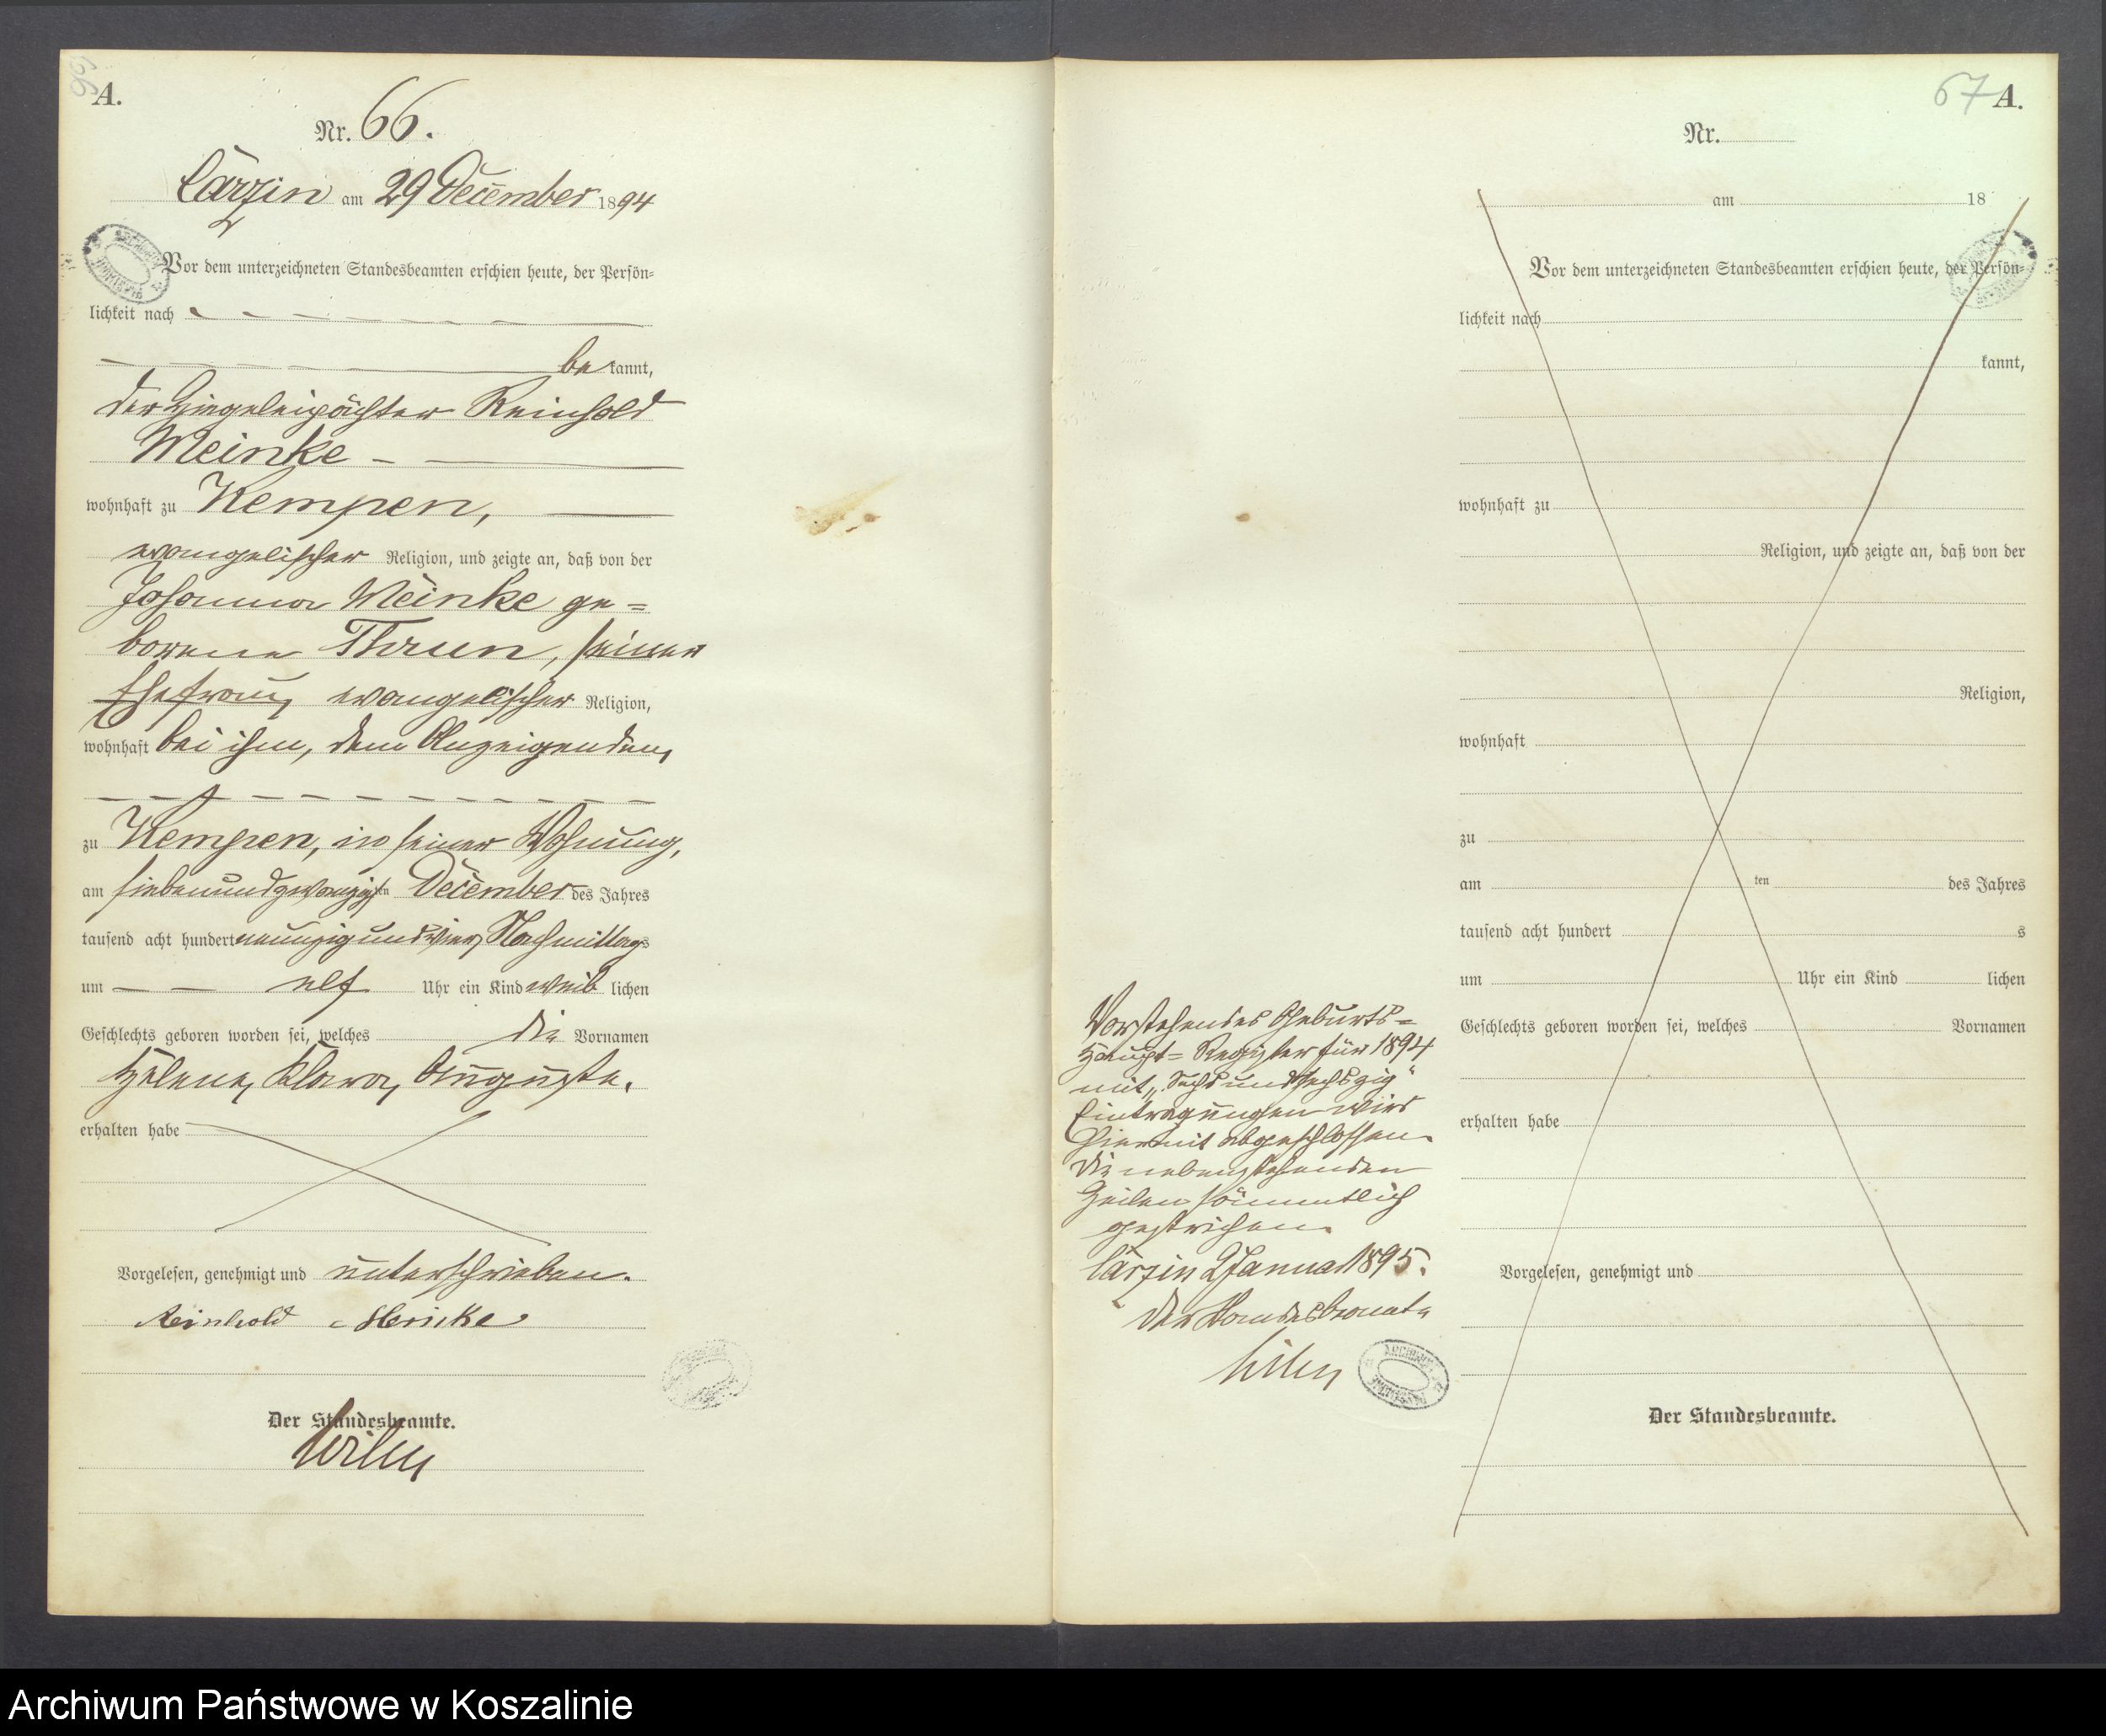 66
A.
Nr. 66.
Carzin am 29 December 1894
Vor dem unterzeichneten Standesbeamten erschien heute, der Persön=
lichkeit nach
be kannt,
der Ziegeleipächter Reinhold
Meinke
wohnhaft zu Kempen,
evangelischer Religion, und zeigte an, daß von der
Johanna Meinke ge=
borene Thrun, seiner
Ehefrau, evangelischer Religion,
wohnhaft bei ihm, dem Anzeigenden,
zu Kempen, in seiner Wohnung,
am siebenundzwanzigsten December des Jahres
tausend acht hundert neunzig und vier, Nachmittags
um elf Uhr ein Kind weib lichen
Geschlechts geboren worden sei, welches die Vornamen
Helene, Klara, Auguste.
erhalten habe
Vorgelesen, genehmigt und unterschrieben.
Reinhold Meinke
Der Standesbeamte.
67 A.
Nr.
am 18
Vor dem unterzeichneten Standesbeamten erschien heute, der Persön=
lichkeit nach
kannt,
wohnhaft zu
Religion, und zeigte an, daß von der
Religion,
wohnhaft
zu
am ten des Jahres
tausend acht hundert s
um Uhr ein Kind lichen
Geschlechts geboren worden sei, welches Vornamen
erhalten habe
Vorgelesen, genehmigt und
Der Standesbeamte.
Vorstehendes Geburts=
Haupt=Register für 1894
mit „Sechsundsechszig"
Eintragungen wird
hiermit abgeschlossen.
Die nebenstehenden
Zeilen sämmtlich
gestrichen.
Carzin 2 Januar 1895.
Der Standesbeamte
Archiwum Państwowe w Koszalinie